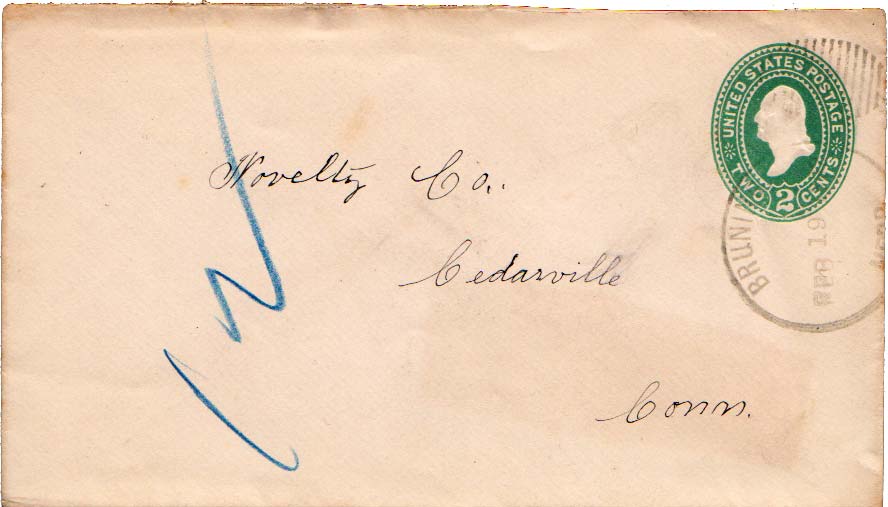 UNITED STATES POSTAGE
TWO 2 CENTS
FEB 19
Novelty Co.
Cedarville
Conn.
12